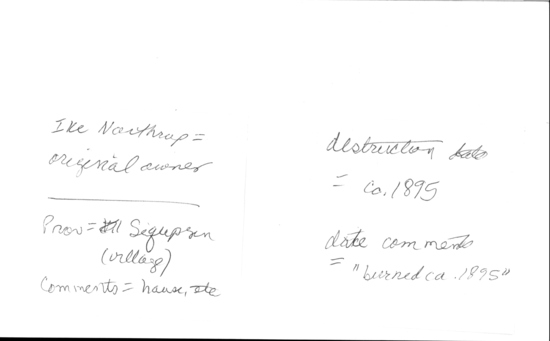 Ike Northrup =
original owner
Prov = Sigupsen
(village)
Comments = house,
destruction date
= ca. 1895
date comments
= "burned ca. 1895"